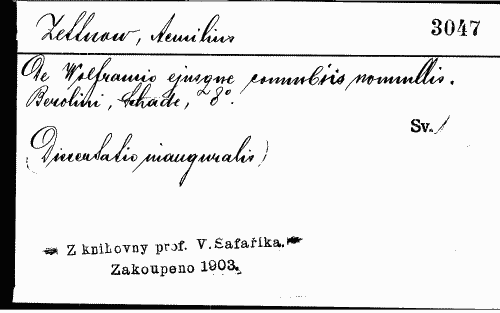 Zettnow, Aemilius 3047
De Wolframio ejusque connubiis nonnullis.
Berolini, Schade, 8°.
Sv. /
(Dissertatio inauguralis)
Z knihovny prof. V. Šafaříka.
Zakoupeno 1903.